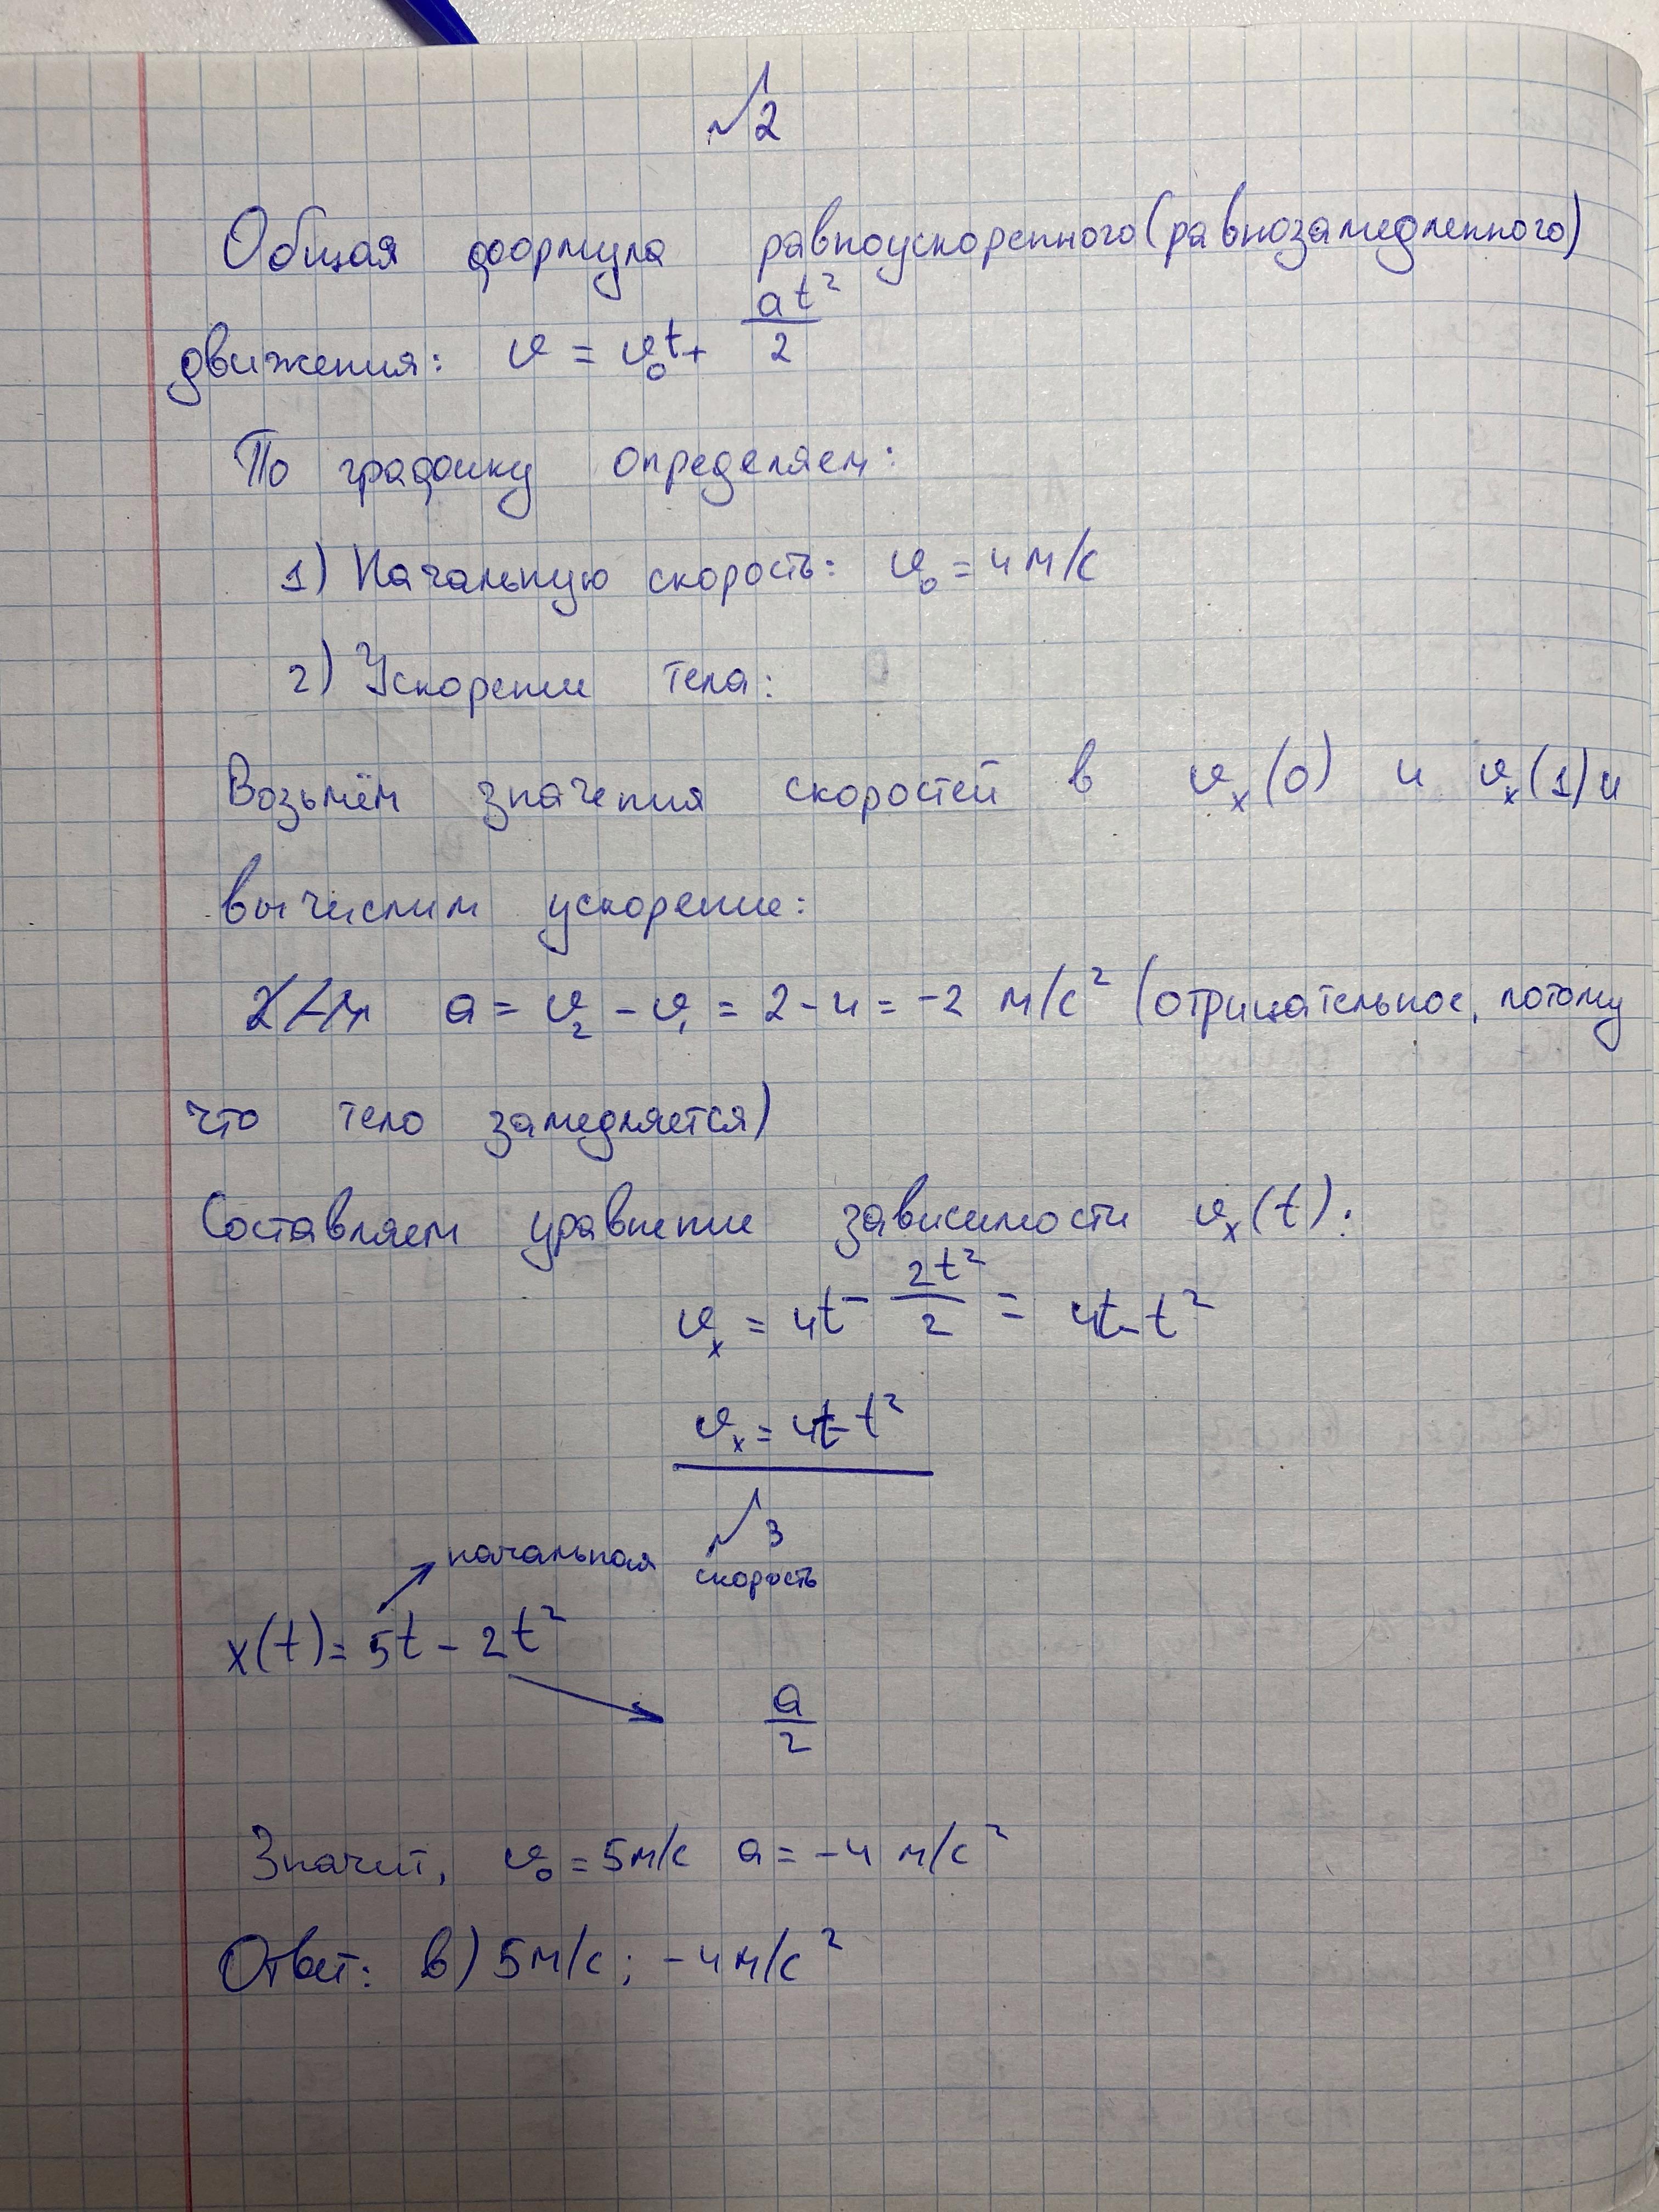 №2
Общая формула равноускоренного (равнозамедленного)
движения: v = v₀t + at²/2
По графику определяем:
1) Начальную скорость: v₀ = 4 м/с
2) Ускорение тела:
Возьмём значения скоростей в vₓ(0) и vₓ(1) и
вычислим ускорение:
a = v₂ - v₁ = 2 - 4 = -2 м/с² (отрицательное, потому
что тело замедляется)
Составляем уравнение зависимости vₓ(t):
vₓ = 4t - 2t²/2 = 4t - t²
vₓ = 4t - t²
№3
начальная скорость
x(t) = 5t - 2t²
a/2
Значит, v₀ = 5м/с a = -4 м/с²
Ответ: в) 5м/с; -4м/с²